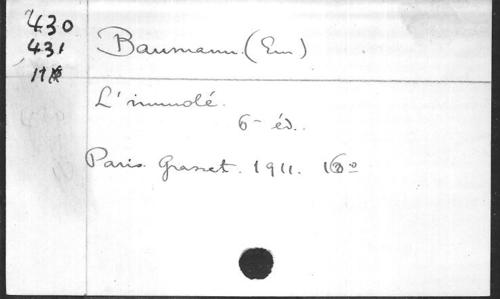 430
431
Baumann (Em)
L'immolé.
6- éd.
Paris. Grasset. 1911. 16º